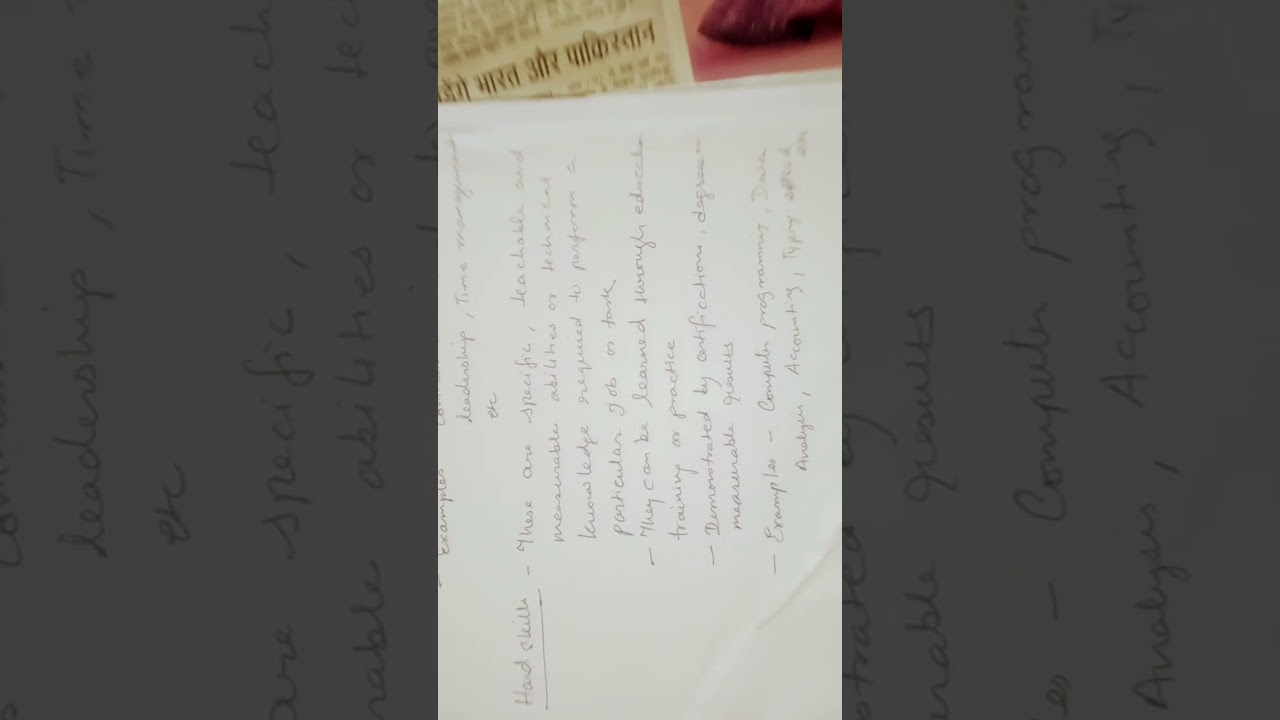 भारत और पाकिस्तान
Examples
leadership, Time management
etc
Hard skills - These are specific, teachable and
measurable abilities or technical
knowledge required to perform a
particular job or task
- They can be learned through
training or practice
- Demonstrated by certifications, degrees or
measurable results
- Examples - Computer programming, Data
Analysis, Accounting, Typing speed